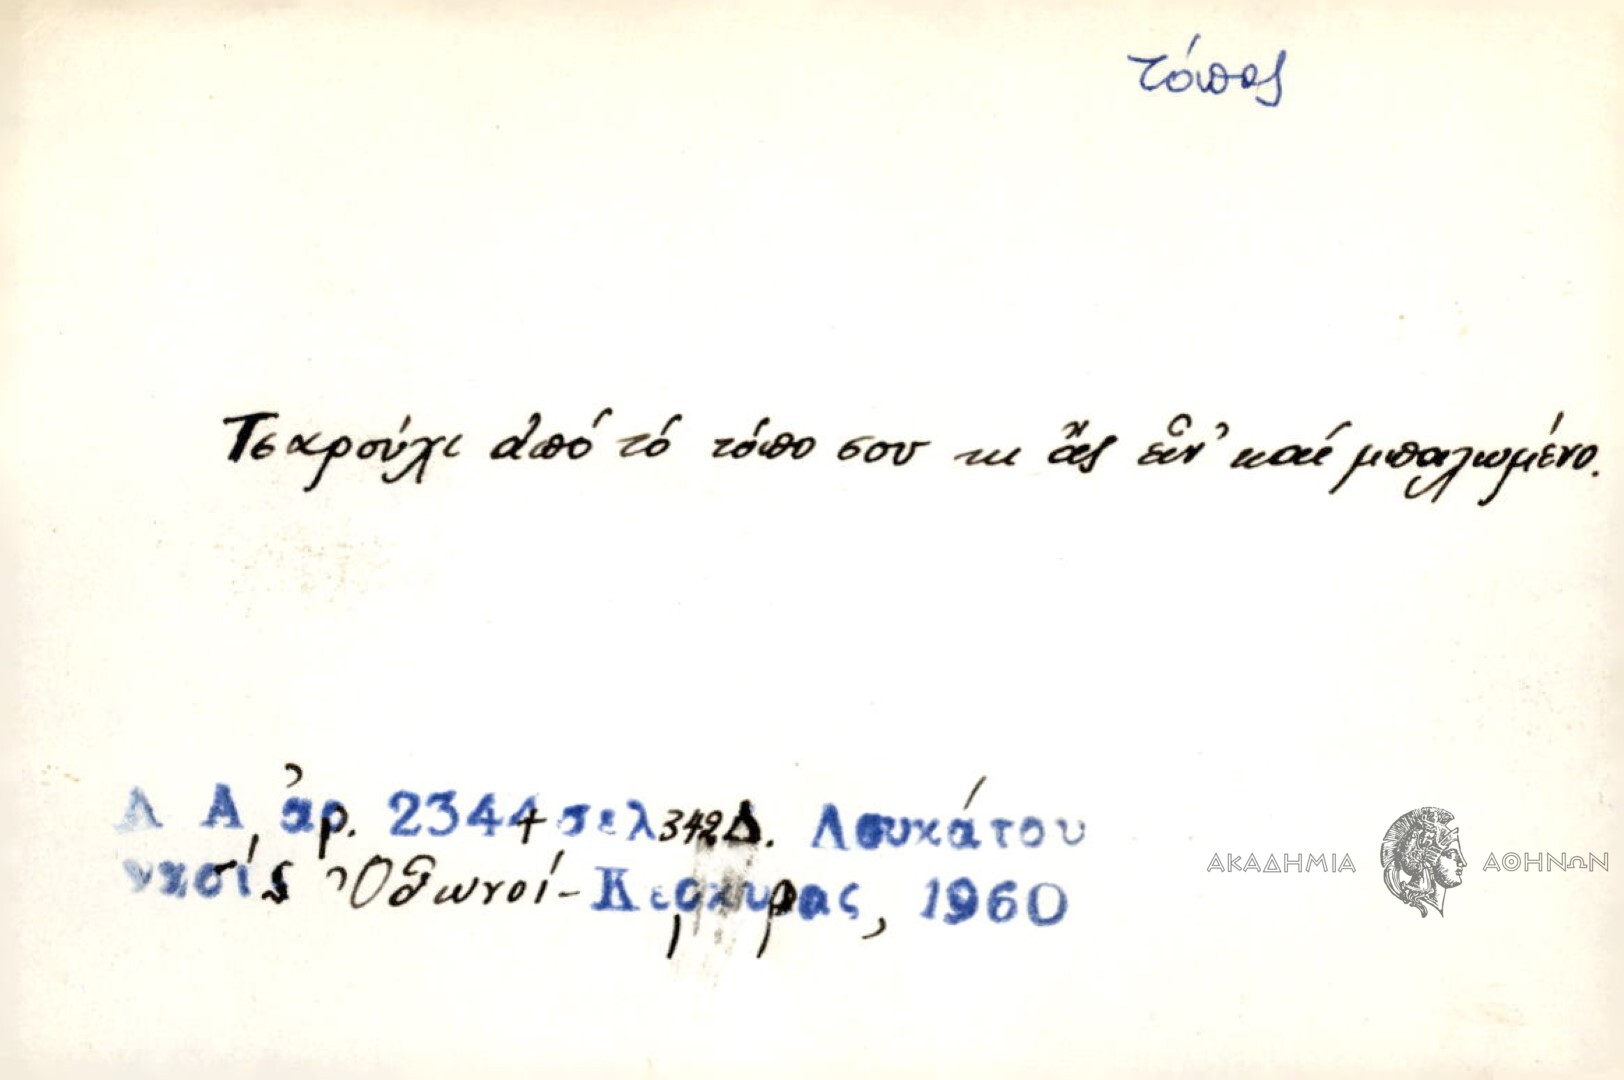 τόπος
Τσαρούχι ἀπό τό τόπο σου κι ἄς εἶν' καί μπαλωμένο.
Λ Α ἀρ. 2344 σελ 342 Δ. Λουκάτου
νησίς Ὀθωνοί - Κερκυρας, 1960
ΑΚΑΔΗΜΙΑ ΑΘΗΝΩΝ